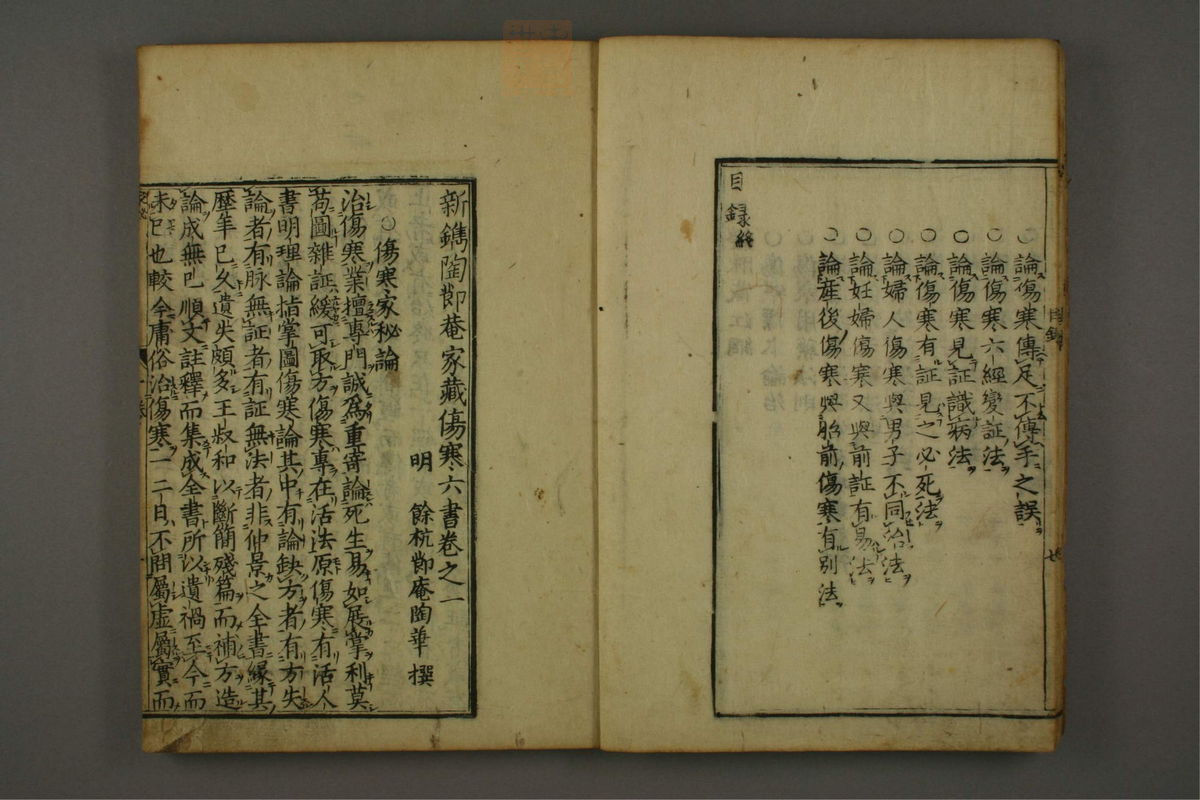 ○論傷寒傳足不傳手之誤
○論傷寒六經變証法
○論傷寒見証識病法
○論傷寒有証見之必死法
○論婦人傷寒與男子不同治法
○論妊婦傷寒又與前証有易法
○論産後傷寒與胎前傷寒有別法
目録終
新鐫陶節菴家藏傷寒六書卷之一
明 餘杭節庵陶華 撰
○傷寒家秘論
治傷寒業擅專門誠爲重寄論死生易如展掌利莫
苟圖雜証緩可取方傷寒專在活法原傷寒有活人
書明理論指掌圖傷寒論其中有論缺方者有方失
論者有脉無証者有証無法者非仲景之全書緣其
歷年已久遺失頗多王叔和以斷簡殘篇而補方造
論成無巳順文註釋而集成全書所以遺禍至今而
未已也較今庸俗治傷寒一二日不問屬虚屬實而